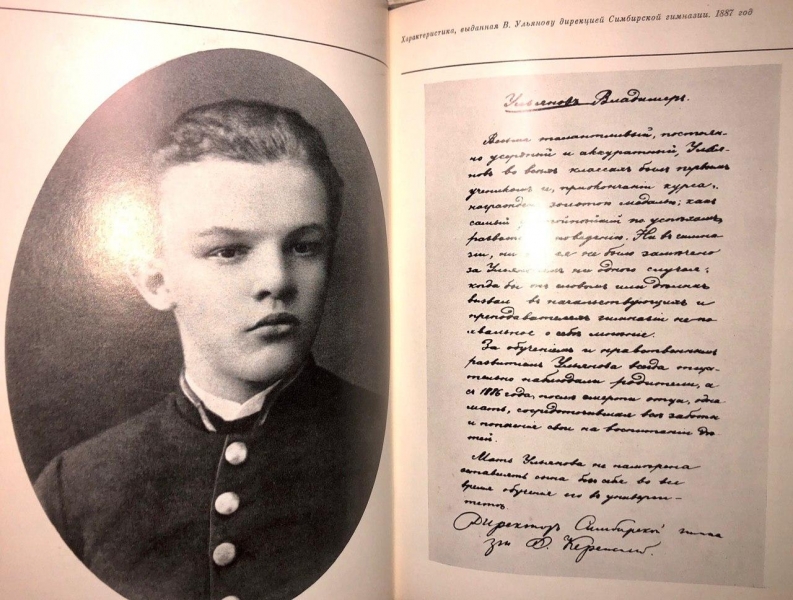 Характеристика, выданная В. Ульянову дирекцией Симбирской гимназии. 1887 год
Ульяновъ Владимиръ.
Весьма талантливый, постоян-
но усердный и аккуратный, Улья-
новъ во всѣхъ классахъ былъ первымъ
ученикомъ и, при окончании курса,
награжденъ золотою медалью, какъ
самый достойнѣйший по успѣхамъ,
развитию и поведению. Ни въ гимна-
зии, ни внѣ ея не было замечено
за Ульяновымъ ни одного случая,
когда бы онъ словомъ или дѣломъ
вызвалъ въ начальствующихъ и
преподавателяхъ гимназии не по-
хвальное о себѣ мнѣние.
За обучениемъ и нравственнымъ
развитиемъ Ульянова всегда тща-
тельно наблюдали родители, а
съ 1886 года, послѣ смерти отца, одна
мать, сосредоточившая всѣ заботы
и попечение свои на воспитании дѣ-
тей.
Мать Ульянова не намѣрена
оставлять сына безъ себя во все
время обучения его въ универси-
тетѣ.
Директоръ Симбирской гимна
зии Ф. Керенский.